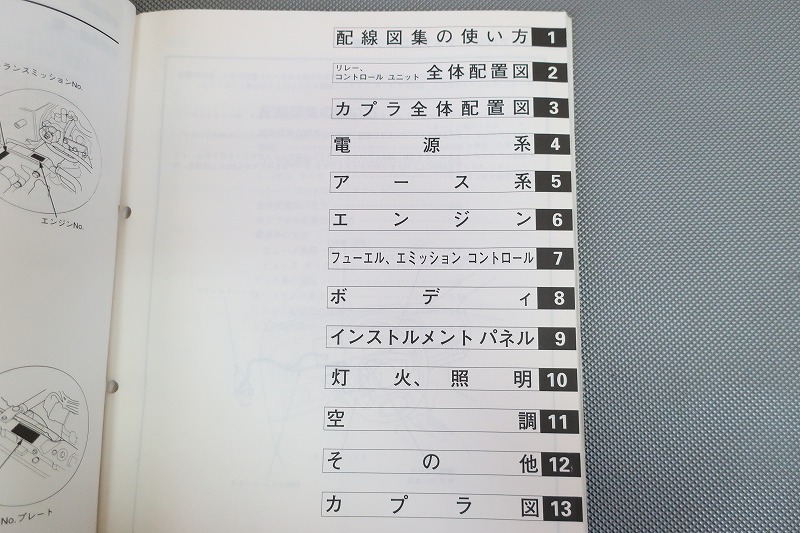 ランスミッションNo.
エンジンNo.
No.プレート
配線図集の使い方 1
リレー、
コントロール ユニット 全体配置図 2
カプラ全体配置図 3
電源系 4
アース系 5
エンジン 6
フューエル、エミッション コントロール 7
ボディ 8
インストルメント パネル 9
灯火、照明 10
空調 11
その他 12
カプラ図 13